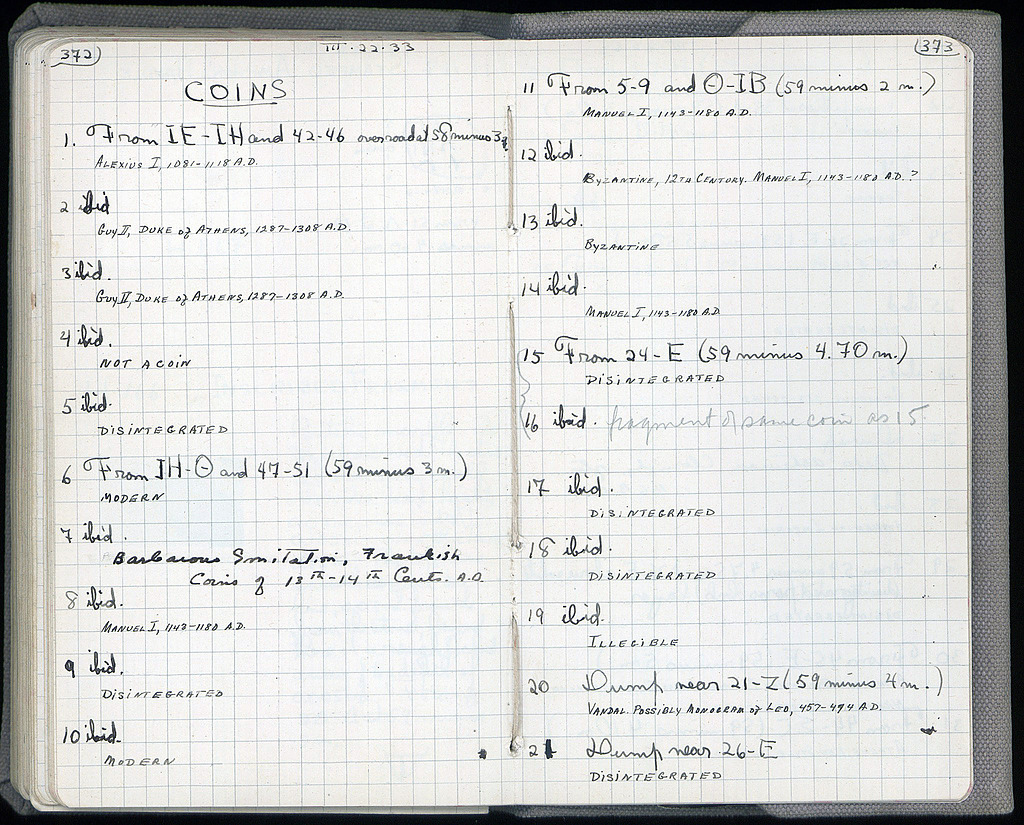 372
III·22·33
COINS
1. From IE-IH and 42-46 over road at 58 minus 3
ALEXIUS I, 1081-1118 A.D.
2 ibid
GUY II, DUKE of ATHENS, 1287-1308 A.D.
3 ibid.
GUY II, DUKE of ATHENS, 1287-1308 A.D.
4 ibid.
NOT A COIN
5 ibid.
DISINTEGRATED
6 From IH-Θ and 47-51 (59 minus 3 m.)
MODERN
7 ibid.
Barbarous Imitation, Frankish
Coins of 13th-14th Cents. A.D.
8 ibid.
MANUEL I, 1143-1180 A.D.
9 ibid.
DISINTEGRATED
10 ibid.
MODERN
373
11 From 5-9 and Θ-IB (59 minus 2 m.)
MANUEL I, 1143-1180 A.D.
12 ibid.
BYZANTINE, 12TH CENTURY. MANUEL I, 1143-1180 A.D.?
13 ibid.
BYZANTINE
14 ibid.
MANUEL I, 1143-1180 A.D.
15 From 24-E (59 minus 4.70 m.)
DISINTEGRATED
16 ibid. fragment of same coin as 15.
17 ibid.
DISINTEGRATED
18 ibid.
DISINTEGRATED
19 ibid.
ILLEGIBLE
20 Dump near 21-Z (59 minus 4 m.)
VANDAL. POSSIBLY MONOGRAM of LEO, 457-474 A.D.
21 Dump near 26-E
DISINTEGRATED